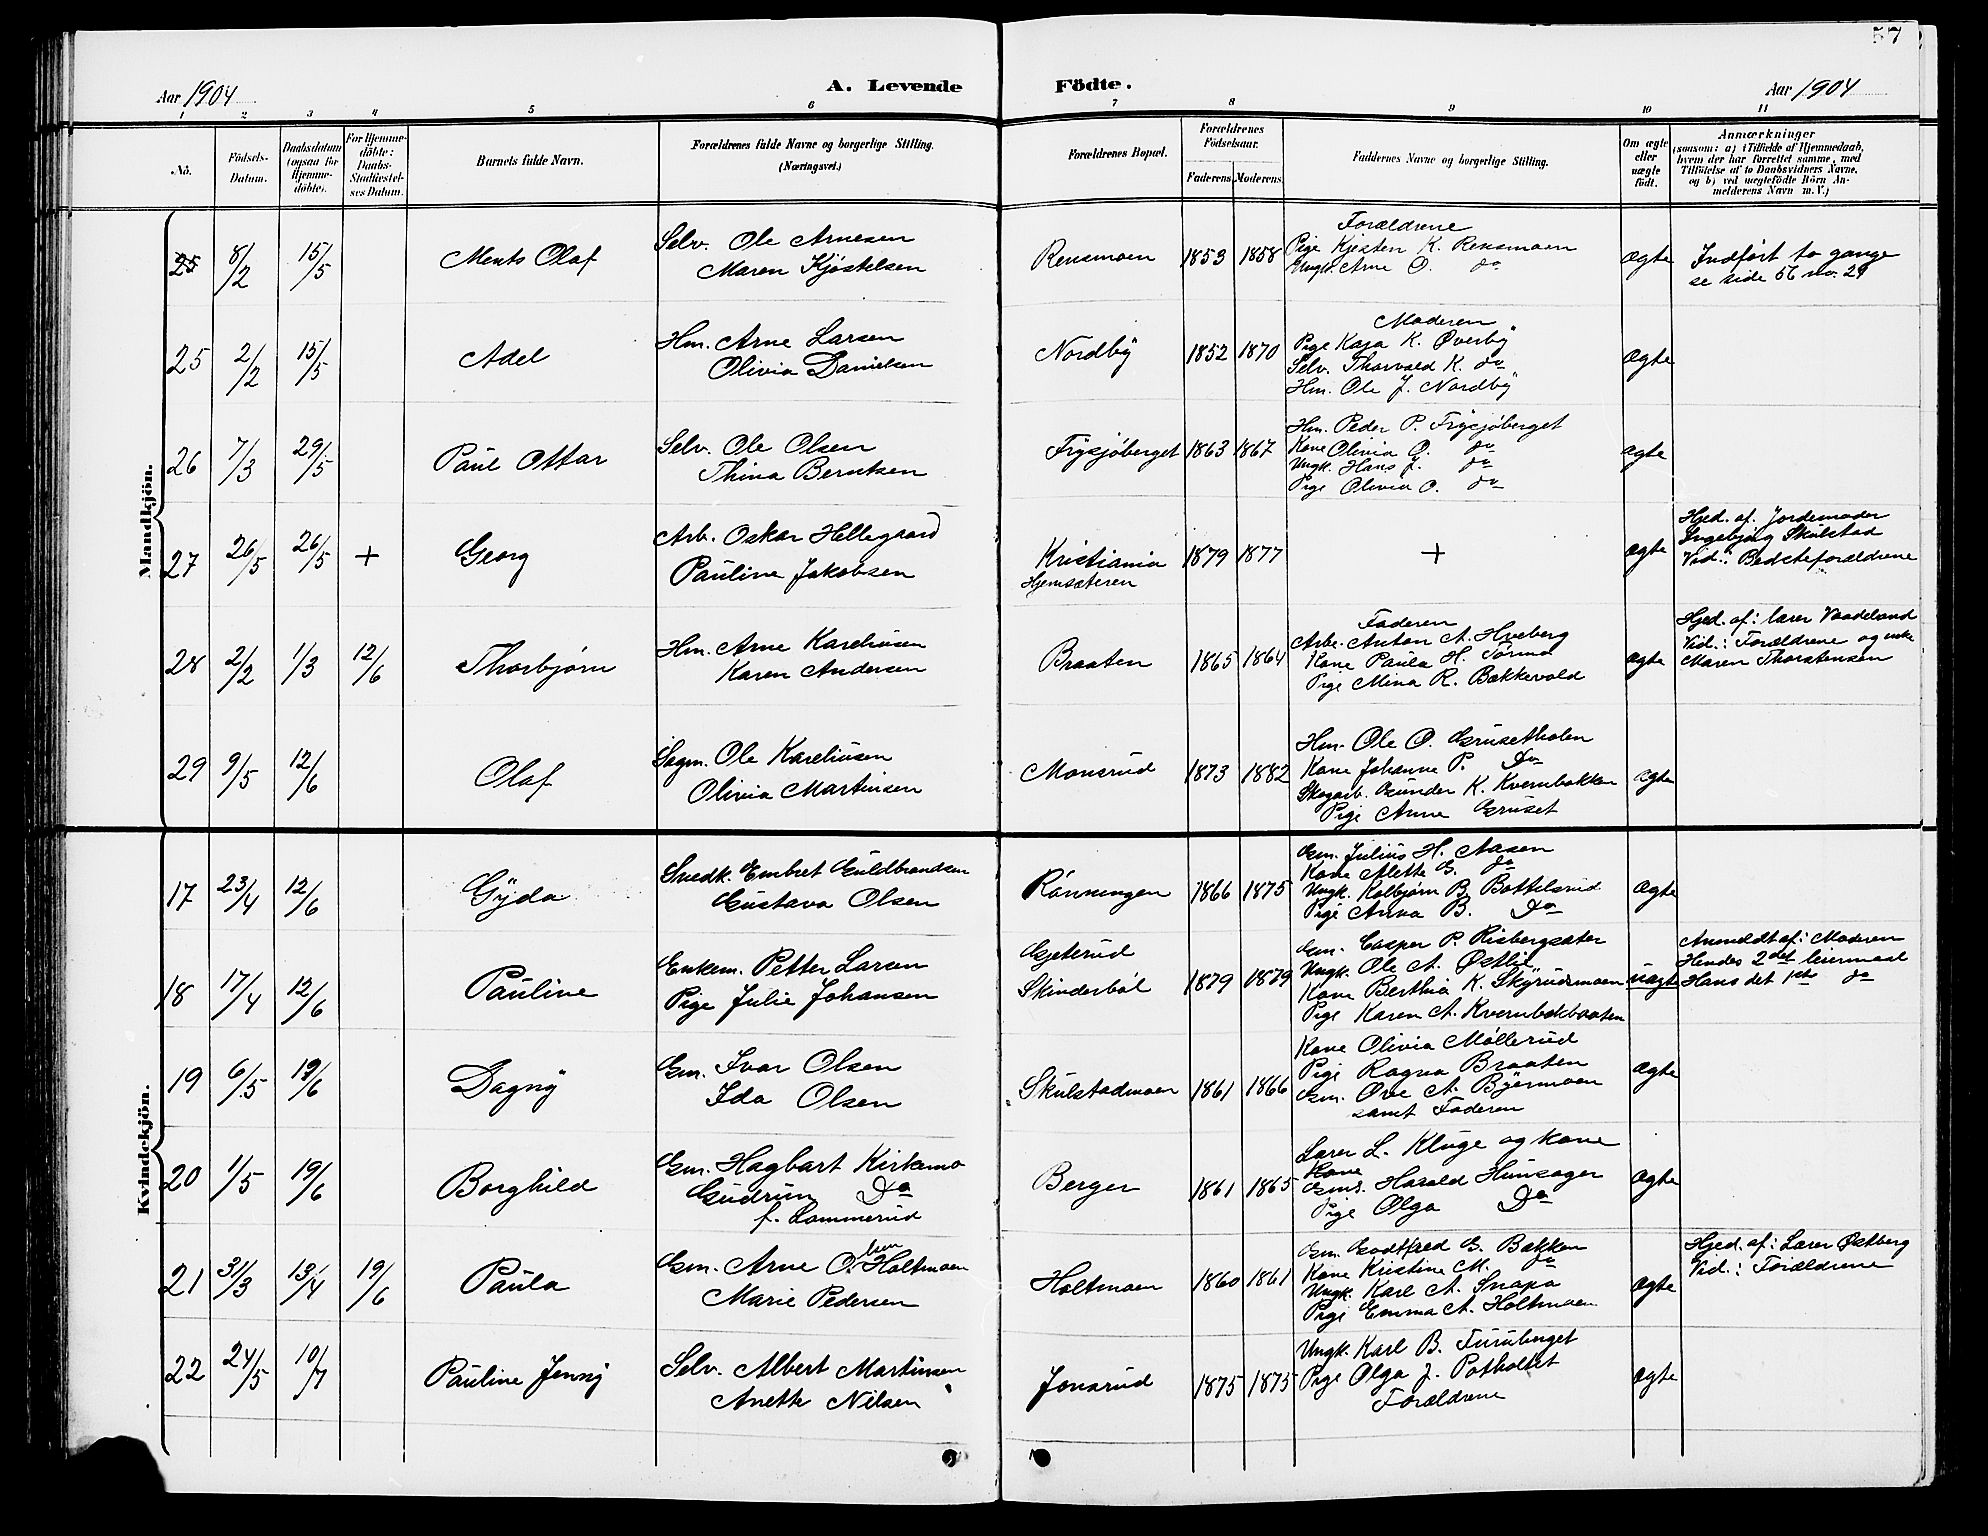 57
Aar 1904
A. Levende
Födte.
Aar 1904
1 2 3 4 5 6 7 8 9 10 11
No.
Födsels-Datum.
Daabsdatum (ogsaa for Hjemme-döbte).
For Hjemme-döbte: Daabs-Stadfæstel-ses Datum.
Barnets fulde Navn.
Forældrenes fulde Navne og borgerlige Stilling.
(Næringsvei.)
Forældrenes Bopæl.
Forældrenes Födselsaar.
Faderens. Moderens.
Faddernes Navne og borgerlige Stilling.
Om ægte eller uægte födt.
Anmærkninger
(saasom: a) i Tilfælde af Hjemmedaab,
hvem der har forrettet samme, med
Tilföielse af to Daabsvidners Navne,
og b) ved uægtefödte Börn An-
melderens Navn m. V.)
Mandkjön.
25 8/2 15/5 Ments Olaf
Selv. Ole Arnesen
Maren Kjøstelsen
Rensmoen 1853 1858
Forældrene
Pige Kjesten K. Rensmoen
Ungk. Arne O. do
ægte
Indført to gange
se side 56 no. 24
25 2/2 15/5 Adel
Hm. Arne Larsen
Olivia Danielsen
Nordby 1852 1870
Moderen
Pige Kaja K. Øverby
Selv. Thorvald K. do
Hm. Ole J. Nordby
ægte
26 7/3 29/5 Paul Ottar
Selv. Ole Olsen
Thina Berntsen
Frysjøberget 1863 1867
Hm. Peder P. Frysjøberget
Kone Olivia O. do
Ungk. Hans J. do
Pige Olivia O. do
ægte
27 26/5 26/5 + Georg
Arb. Oskar Hellegaard
Pauline Jakobsen
Kristiania
Hjemsæteren
1879 1877
+
ægte
Hjed. af. Jordemoder
Ingebjørg Skulstad
Vid.: Bedsteforældrene
28 2/2 1/3 12/6 Thorbjørn
Hm. Arne Kareliusen
Karen Andersen
Braaten 1865 1864
Faderen
Arbr. Anton A. Hveberg
Kone Paula H. Tørmo
Pige Mina R. Bækkevold
ægte
Hjed. af: lærer Vaadeland
Vid.: Forældrene og enke
Maren Thorstensen
29 9/5 12/6 Olaf
Sagm. Ole Kareliusen
Olivia Martinsen
Monsrud 1873 1882
Hm. Ole O. Grusetholen
Kone Johanne P. Do
Skogarb. Gunder K. Kvernbækken
Pige Anne Gruset
ægte
Kvindekjön.
17 23/4 12/6 Gyda
Snedk. Embret Guldbrandsen
Gustava Olsen
Rønningen 1866 1875
Gm. Julius H. Aasen
Kone Alette G. do
Ungk. Kolbjørn B. Bottelsrud
Pige Anna B. Do
ægte
18 17/4 12/6 Pauline
Enkem. Petter Larsen
Pige Julie Johansen
Gjeterud
Skinderbøl
1879 1879
Gm. Casper P. Risbergsæter
Ungk. Ole A. Østlie
Kone Berthia K. Skyrudsmoen
Pige Karen A. Kvernbækbraaten
uægte
Anmeldt af: Moderen
Hendes 2det leiermaal
Hans det 1ste do
19 6/5 19/6 Dagny
Gm. Ivar Olsen
Ida Olsen
Skulstadmoen 1861 1866
Kone Olivia Møllerud
Pige Ragna Braaten
Gm. Ove A. Byermoen
samt Faderen
ægte
20 1/5 19/6 Borghild
Gm. Hagbart Kirkemo
Gudrun Do
f. Lommerud
Berger 1861 1865
Lærer L. Kluge og kone
Kone
Gms. Harald Hunsager
Pige Olga Do
ægte
21 31/3 13/4 19/6 Paula
Gm. Arne Olsen Holtmoen
Marie Pedersen
Holtmoen 1860 1861
Gm. Godtfred G. Bækken
Kone Kristine M. do
Ungk. Karl A. Snapa
Pige Emma A. Holtmoen
ægte
Hjed. af: Lærer Østberg
Vid.: Forældrene
22 24/5 10/7 Pauline Jenny
Selv. Albert Martinsen
Anette Nilsen
Jonsrud 1875 1875
Ungk. Karl B. Furuberget
Pige Olga J. Potholtet
Forældrene
ægte